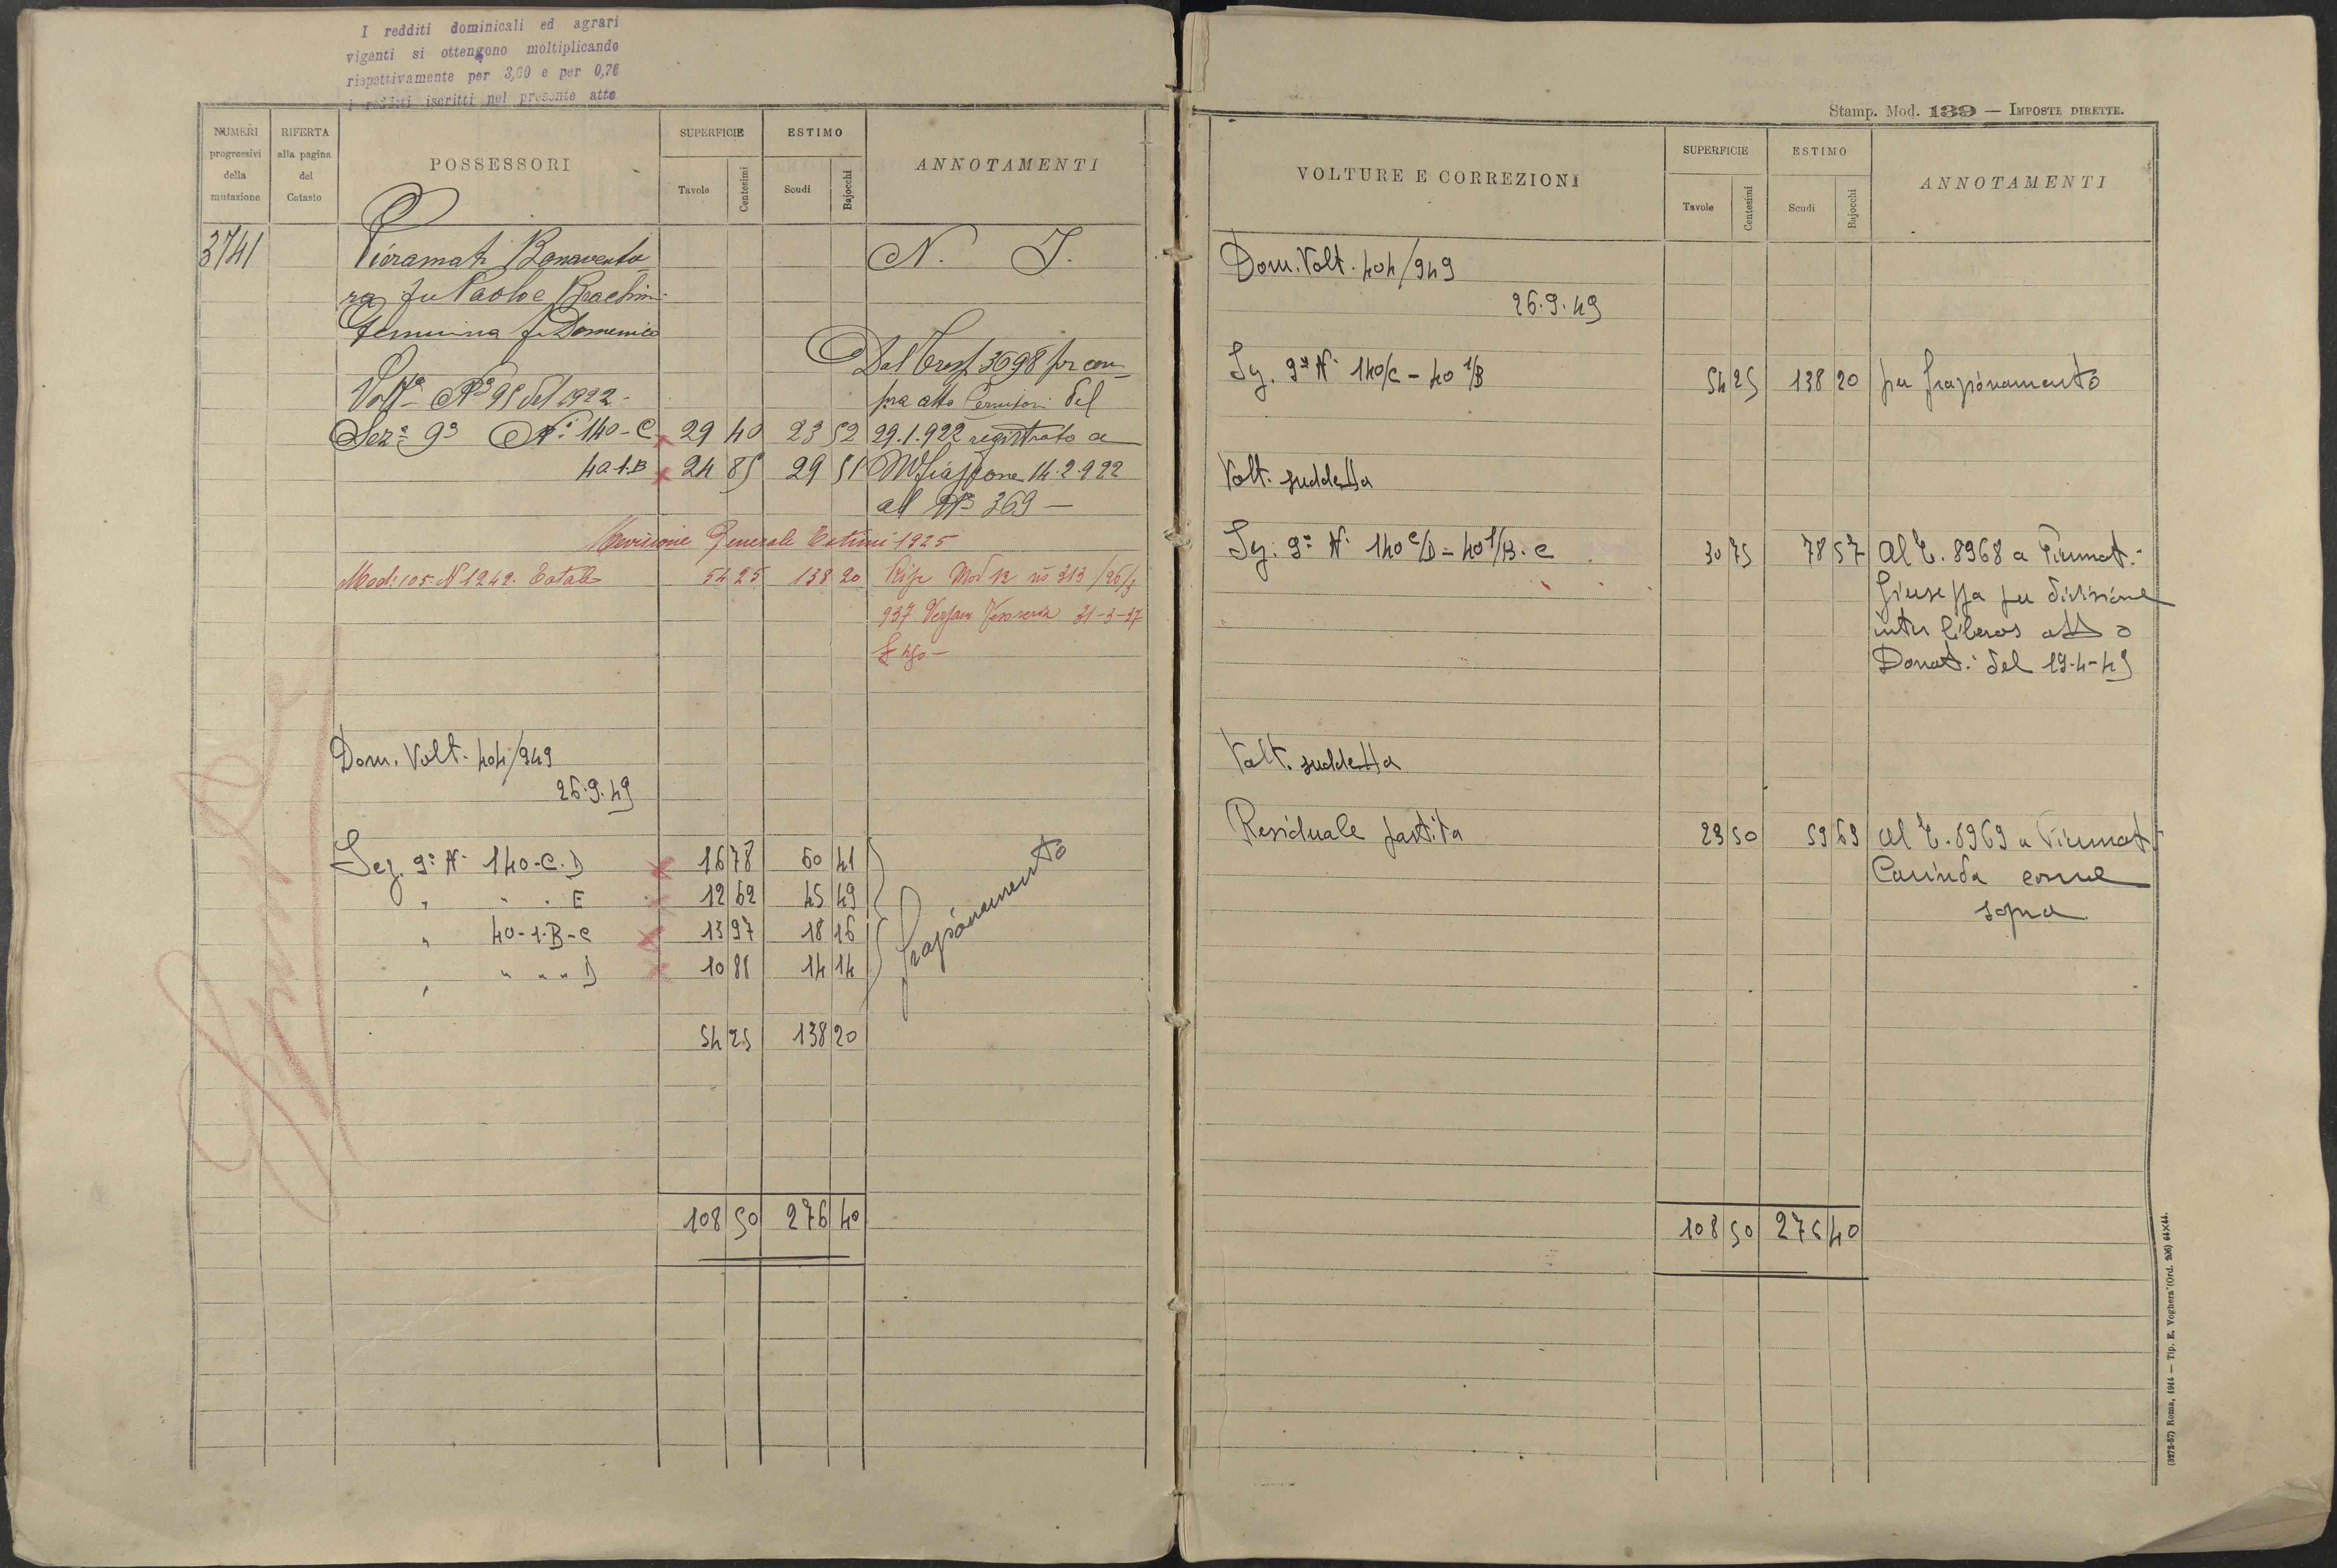 I redditi dominicali ed agrari
vigenti si ottengono moltiplicando
rispettivamente per 3,60 e per 0,76
i redditi iscritti nel presente atto
NUMERI progressivi della mutazione
RIFERTA alla pagina del Catasto
POSSESSORI
SUPERFICIE
Tavole Centesimi
ESTIMO
Scudi Bajocchi
ANNOTAMENTI
3741
Bonaventu
ra fu Paolo e
Gemmina f. Domenico
N. I.
Volt.ª N.º 95 del 1922 -
Dal Trasf. 3698 per com
pra atto del
Sez.ª 9ª N.i 140-C 29 40 23 52 29.1.922 registrato a
40-1.B 24 85 29 51 14.2.922
al N.º 369 —
Revisione Generale Estimi 1925
Mod: 105. N 1242. Totale 54 25 138 20 Mod 12 nº 313 /26/3
937 31-3-37
Dom. Volt. 404/949
26.9.49
Sez. 9ª N. 140-C. D 16 78 60 41
" " . E 12 62 45 49
" 40-1.B-C 13 97 18 16
" " " " D 10 88 14 14
frazionamento
54 25 138 20
108 50 276 40
Stamp. Mod. 139 — IMPOSTE DIRETTE.
VOLTURE E CORREZIONI
SUPERFICIE
Tavole Centesimi
ESTIMO
Scudi Bajocchi
ANNOTAMENTI
Dom. Volt. 404/949
26.9.49
Sez. 9ª N. 140/C - 40 1/B 54 25 138 20 per frazionamento
Volt. suddetta
Sez. 9ª N. 140 C/D - 40 1/B. C 30 75 78 57 Al T. 8968 a
Giuseppa per divisione
inter liberos atto
Donat. del 19-4-49
Volt. suddetta
Residuale partita 23 50 59 63 Al T. 8969 a
come
sopra
108 50 276 40
(3272-57) Roma, 1914 — Tip. E. Voghera (Ord. 206) 64×44.